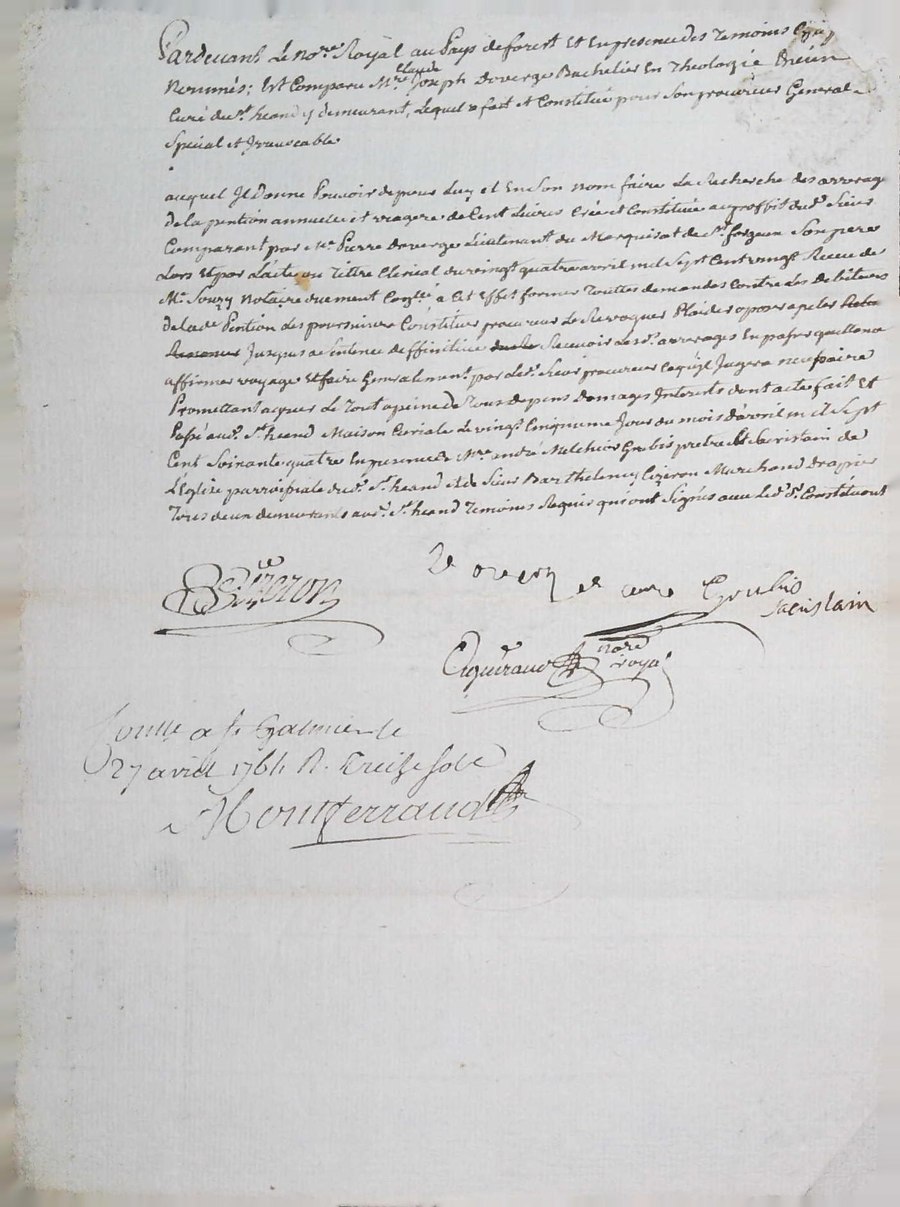 Pardevant Le no.re Royal au Pays de forest Et En presence des Temoins Cy
Nommés; Est Comparu M.re Claude Joseph Deverge Bachelier En Theologie Encien
Curé du S.t heand y demeurant, Lequel a fait et Constitué pour Son procureur General
Special et Irrevocable
auquel Il Donne Pouvoir de pour Luy et En Son nom faire La Recherche des arrerages
de la pention annuelle et viagere de Cent Livres Créé et Constitué au proffit dud. Sieur
Comparant par M.e Pierre Deverge Lieutenant du Marquisat de S.t forgeux Son pere
Lors Et par L'acte ou Tittre Clerical du vingt quatre avril mil Sept Cent vingt Receu de
M.e Souzy Notaire duement Con.llé a Cet Effet former Touttes demandes Contre Les debiteurs
de lad.e Pention Les poursuivre Constituer procureur Le Revoquer Plaider oposer apeler
Jusques a Sentence deffinitive Recevoir Lesd. arrerages En passer quittance
affirmer voyage Et faire Generalement par led. Sieur procureur Ce qu'il Jugera necessaire
Promettant agreer Le Tout a peine de Tous depens Domages Interets dont acte fait Et
Passé aud. S.t heand Maison Curiale Le vingt Cinquieme Jour du mois d'avril mil Sept
Cent Soixante quatre En presence M.re andré Melchior Grubis pretre Et Sacristain de
L'Eglise parroissiale dud. S.t heand et de Sieur Barthelemy Cizeron Marchand drapier
Tous deux demeurants aud. S.t heand Temoins Requis qui ont Signés avec led. S.r Constituant
Cizeron
curé Grubis
Sacristain
no.re
royal
a S.t Galmier le
27 avril 1764 R. treize sols
Montferrand